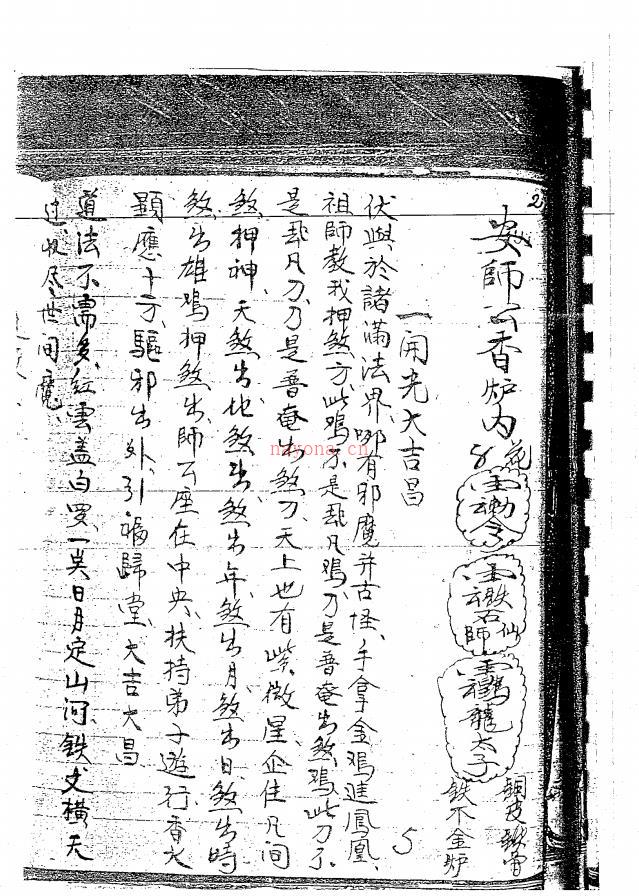 2
安師公香炉内
花
勅令
铁石仙師
龍太子
銅皮铁骨
铁不金炉
5
一開光大吉昌
伏與於諸滿法界哪有邪魔并古怪手拿金鳮進鳳凰
祖師教我押煞方此鳮不是乱凡鳮乃是普奄出煞鳮此刀不
是乱凡刀刀是普奄出煞刀天上也有紫微星企住凡间
煞押神天煞出地煞出煞出年煞出月煞出日煞出時
煞出雄鳮押煞出師公座在中央扶持弟子遊行香火
顯應十方驅邪出外引福歸堂大吉大昌
道法不需多紅雲盖白日月定山河铁丈横天
过收尽世间魔
nayona.cn